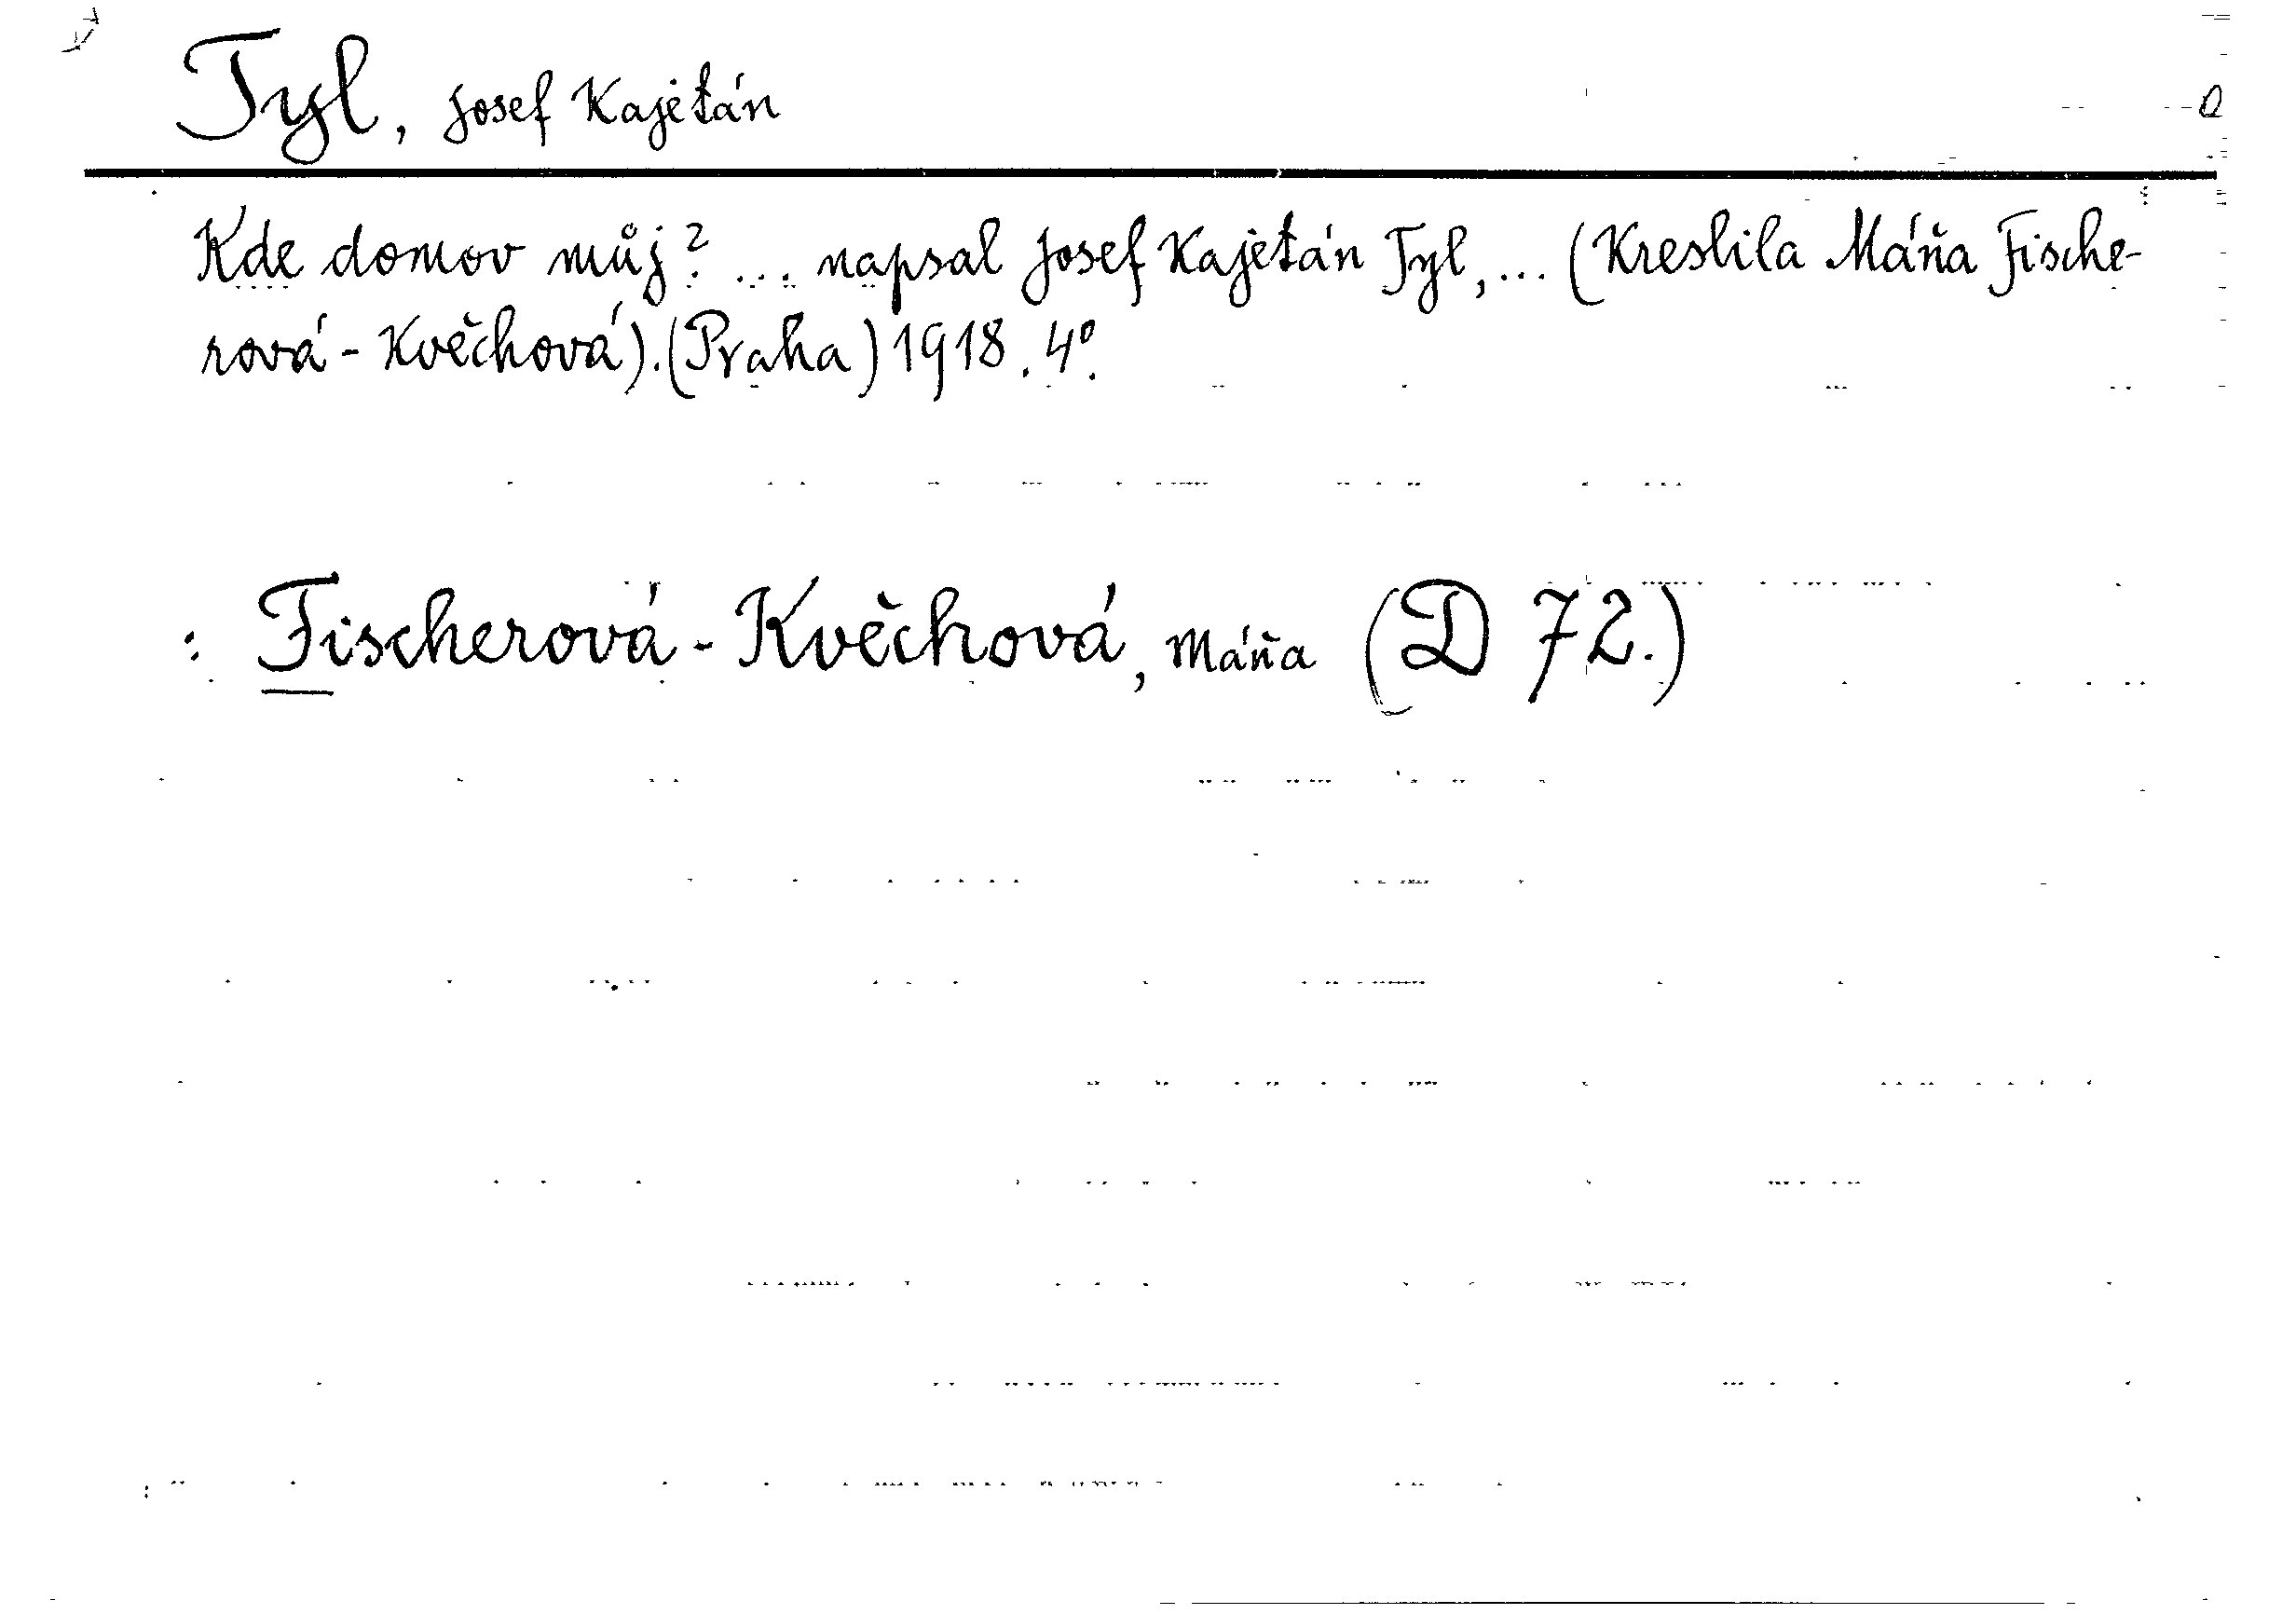 Tyl, Josef Kajetán
Kde domov můj? ... napsal Josef Kajetán Tyl, ... (Kreslila Máňa Fische-
rová - Kvěchová). (Praha) 1918. 4°.
: Fischerová - Kvěchová, Máňa (D 72.)